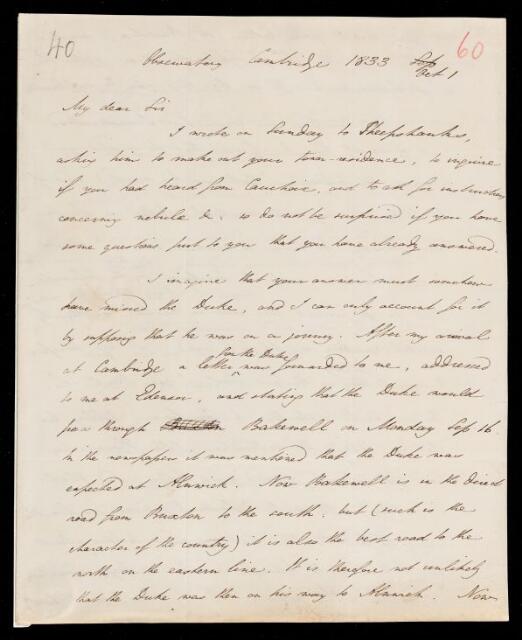 40
60
Observatory Cambridge 1833 Sep
Oct 1
My dear Sir
I wrote on Sunday to Sheepshanks,
asking him to make out your town-residence, to inquire
if you had heard from Cauchoix, and to ask for instructions
concerning nebulæ &c. so do not be surprised if you have
some questions put to you that you have already answered.
I imagine that your answer must somehow
have missed the Duke, and I can only account for it
by supposing that he was on a journey. After my arrival
from the Duke
at Cambridge a letter ^ was forwarded to me, addressed
to me at Edensor, and stating that the Duke would
pass through Bakewell on Monday Sep 16.
In the newspapers it was mentioned that the Duke was
expected at Alnwick. Now Bakewell is in the direct
road from Buxton to the south, but (such is the
character of the country) it is also the best road to the
north on the eastern line. It is therefore not unlikely
that the Duke was then on his way to Alnwick. Now